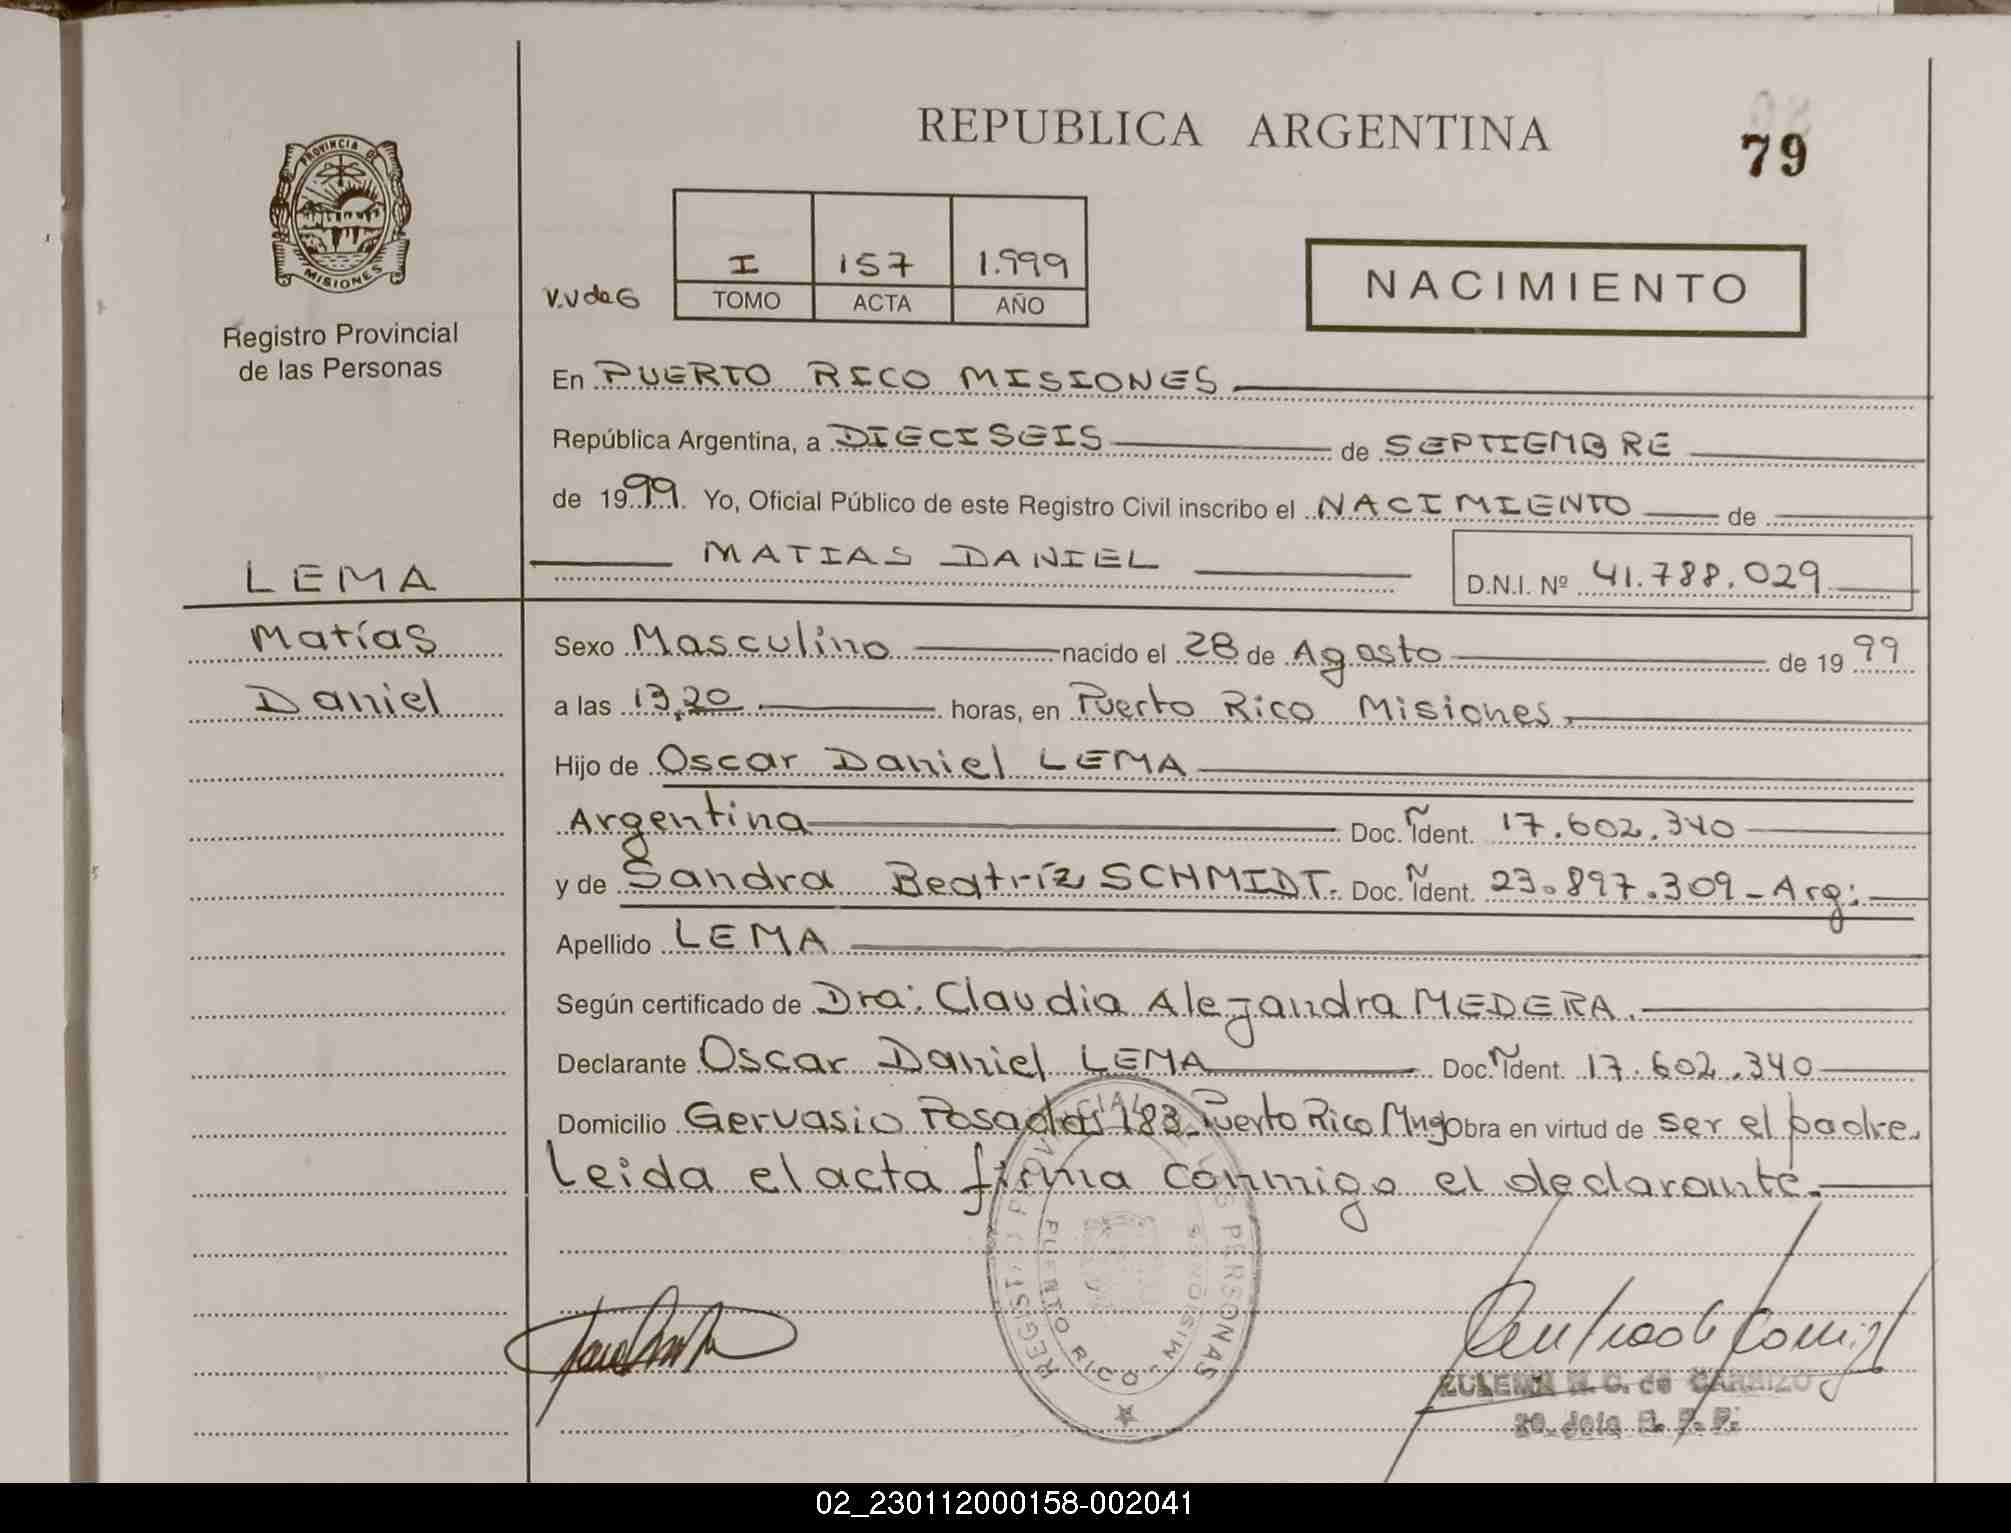 REPUBLICA ARGENTINA
79
PROVINCIA DE
MISIONES
Registro Provincial
de las Personas
V.V de G
I 157 1.999
TOMO ACTA AÑO
NACIMIENTO
En PUERTO RICO MISIONES
República Argentina, a DIECISEIS de SEPTIEMBRE
de 1999. Yo, Oficial Público de este Registro Civil inscribo el NACIMIENTO de
MATIAS DANIEL
D.N.I. Nº 41.788.029
LEMA
Matías
Daniel
Sexo Masculino nacido el 28 de Agosto de 19 99
a las 13,20 horas, en Puerto Rico Misiones.
Hijo de Oscar Daniel LEMA
Argentina Doc. Ident. 17.602.340
y de Sandra Beatríz SCHMIDT. Doc. Ident. 23.897.309 - Arg:
Apellido LEMA
Según certificado de Dra: Claudia Alejandra MEDERA.
Declarante Oscar Daniel LEMA Doc. Ident. 17.602.340
Domicilio Gervasio Posadas 183 - Puerto Rico Mnes Obra en virtud de ser el padre.
Leida el acta firma conmigo el declarante.
REGISTRO PROVINCIAL DE LAS PERSONAS
PUERTO RICO - MISIONES
ZULEMA N. C. de CARRIZO
02_230112000158-002041